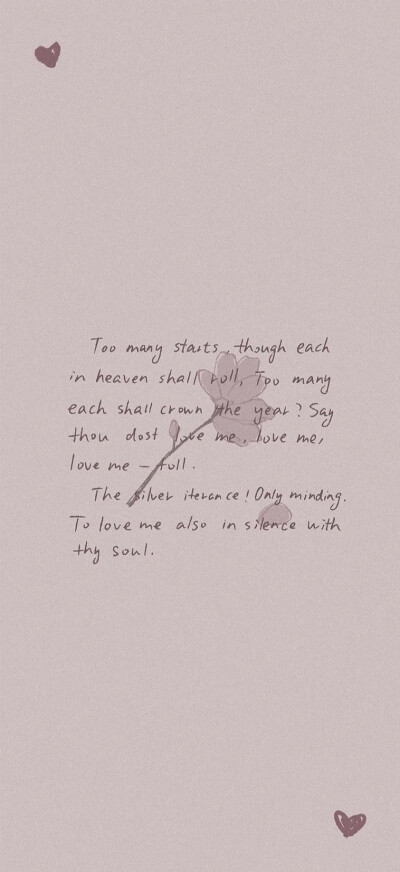 Too many starts, though each
in heaven shall roll, Too many
each shall crown the year? Say
thou dost love me, love me,
love me - tull.
The silver iterance! Only minding.
To love me also in silence with
thy soul.